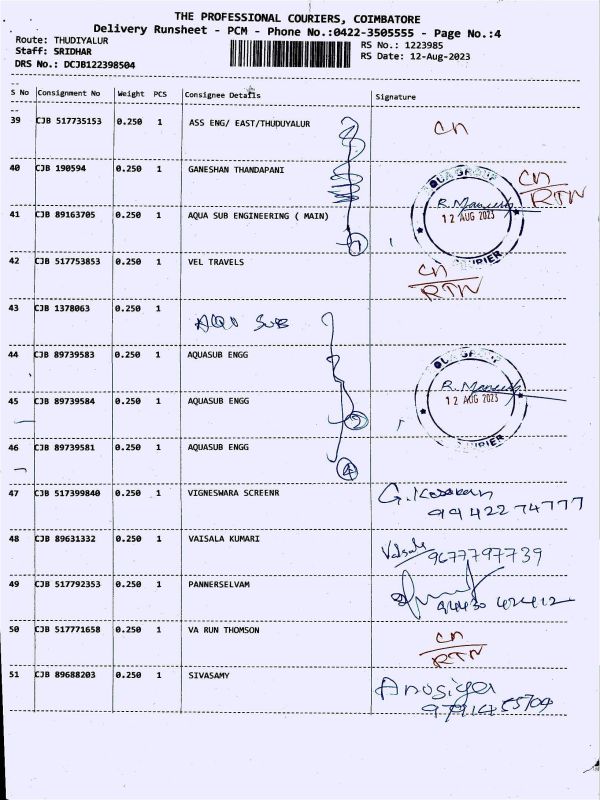 THE PROFESSIONAL COURIERS, COIMBATORE
Delivery Runsheet - PCM - Phone No.:0422-3505555 - Page No.:4
Route: THUDIYALUR
Staff: SRIDHAR
DRS No.: DCJB122398504
RS No.: 1223985
RS Date: 12-Aug-2023
S No Consignment No Weight PCS Consignee Details Signature
39 CJB 517735153 0.250 1 ASS ENG/ EAST/THUDUYALUR cn
40 CJB 190594 0.250 1 GANESHAN THANDAPANI cn
RTN
41 CJB 89163705 0.250 1 AQUA SUB ENGINEERING ( MAIN)
12 AUG 2023
42 CJB 517753853 0.250 1 VEL TRAVELS cn
RTN
43 CJB 1378063 0.250 1 AQU SUB
44 CJB 89739583 0.250 1 AQUASUB ENGG
45 CJB 89739584 0.250 1 AQUASUB ENGG
12 AUG 2023
46 CJB 89739581 0.250 1 AQUASUB ENGG
4
47 CJB 517399840 0.250 1 VIGNESWARA SCREENR
99422 74777
48 CJB 89631332 0.250 1 VAISALA KUMARI
9677797739
49 CJB 517792353 0.250 1 PANNERSELVAM
50 CJB 517771658 0.250 1 VA RUN THOMSON cn
RTN
51 CJB 89688203 0.250 1 SIVASAMY